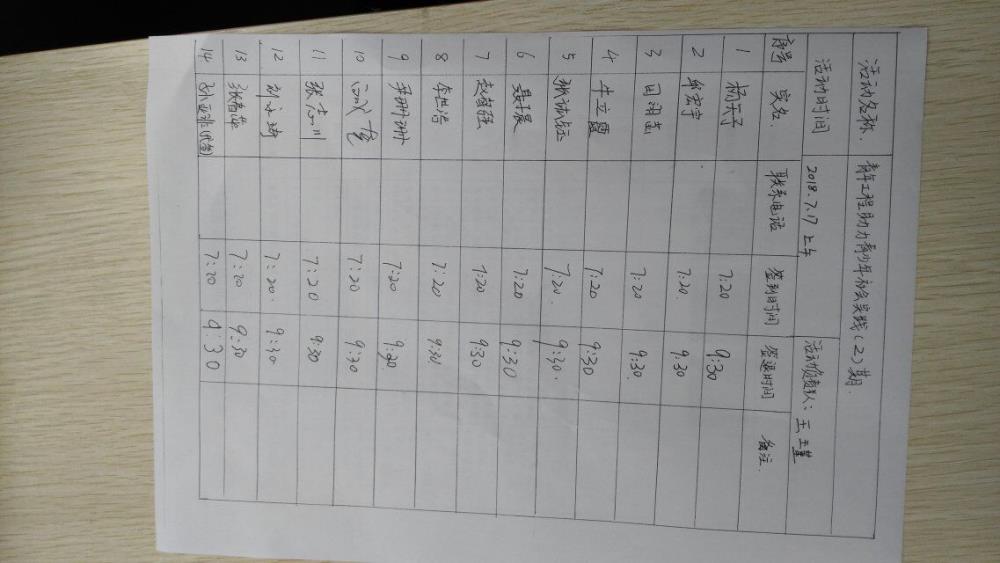 活动名称 青年工程助力青少年社会实践(2)期.
活动时间 2018.7.17 上午 活动负责人: 王
序号 姓名. 联系电话 签到时间 签退时间 备注.
1 杨天子 7:20 9:30
2 7:20. 9:30
3 田 7:20 9:30.
4 牛立 7:20 9:30
5 张 7:20. 9:30.
6 7:20 9:30
7 赵 强 7:20 9:30
8 李 浩 7:20 9:30
9 珊珊 7:20 9:30
10 7:20 9:30
11 张志川 7:20 9:30
12 刘 琦 7:20. 9:30
13 张春 7:20 9:30
14 孙亚 (代签) 7:20 9:30